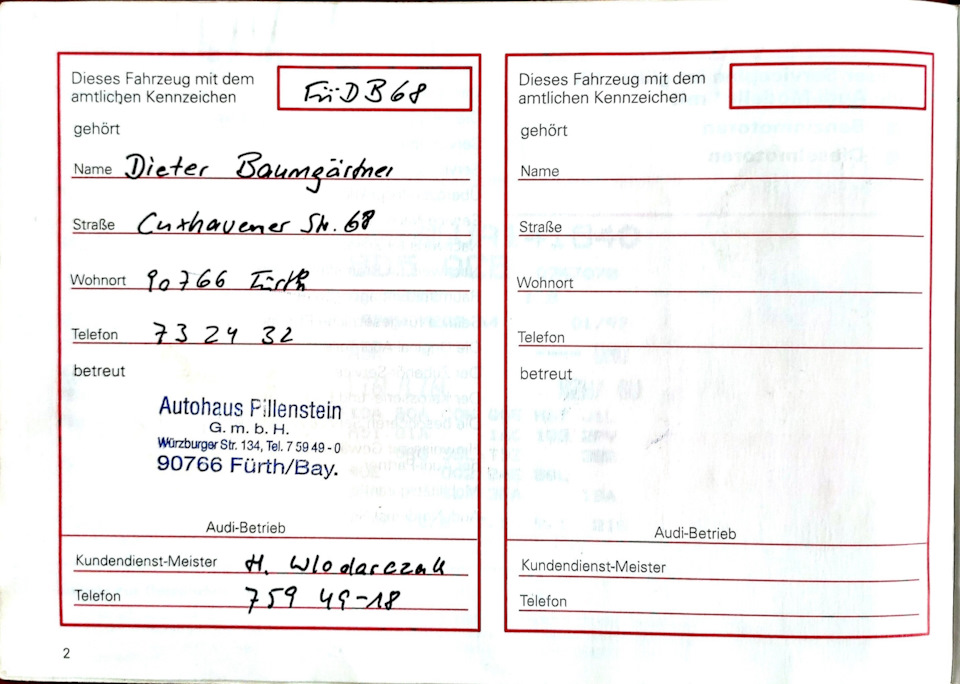 Dieses Fahrzeug mit dem
amtlichen Kennzeichen
FÜ DB 68
gehört
Name Dieter Baumgärtner
Straße Cuxhavener Str. 68
Wohnort 90766 Fürth
Telefon 73 24 32
betreut
Autohaus Pillenstein
G. m. b. H.
Würzburger Str. 134, Tel. 7 59 49 - 0
90766 Fürth/Bay.
Audi-Betrieb
Kundendienst-Meister H. Wlodarczak
Telefon 759 49-18
2
Dieses Fahrzeug mit dem
amtlichen Kennzeichen
gehört
Name
Straße
Wohnort
Telefon
betreut
Audi-Betrieb
Kundendienst-Meister
Telefon